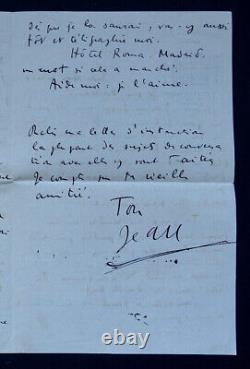 dès que je la saurai, vas-y aussi
tôt et télégraphie moi.
Hôtel Roma. Madrid.
un mot si cela a marché.
Aide moi : je l'aime.
Relis ma lettre d'instruction
la plupart des sujets de conversa
tion avec elle y sont traités
Je compte sur ta vieille
amitié.
Ton
Jean
© 1stdibs.fr